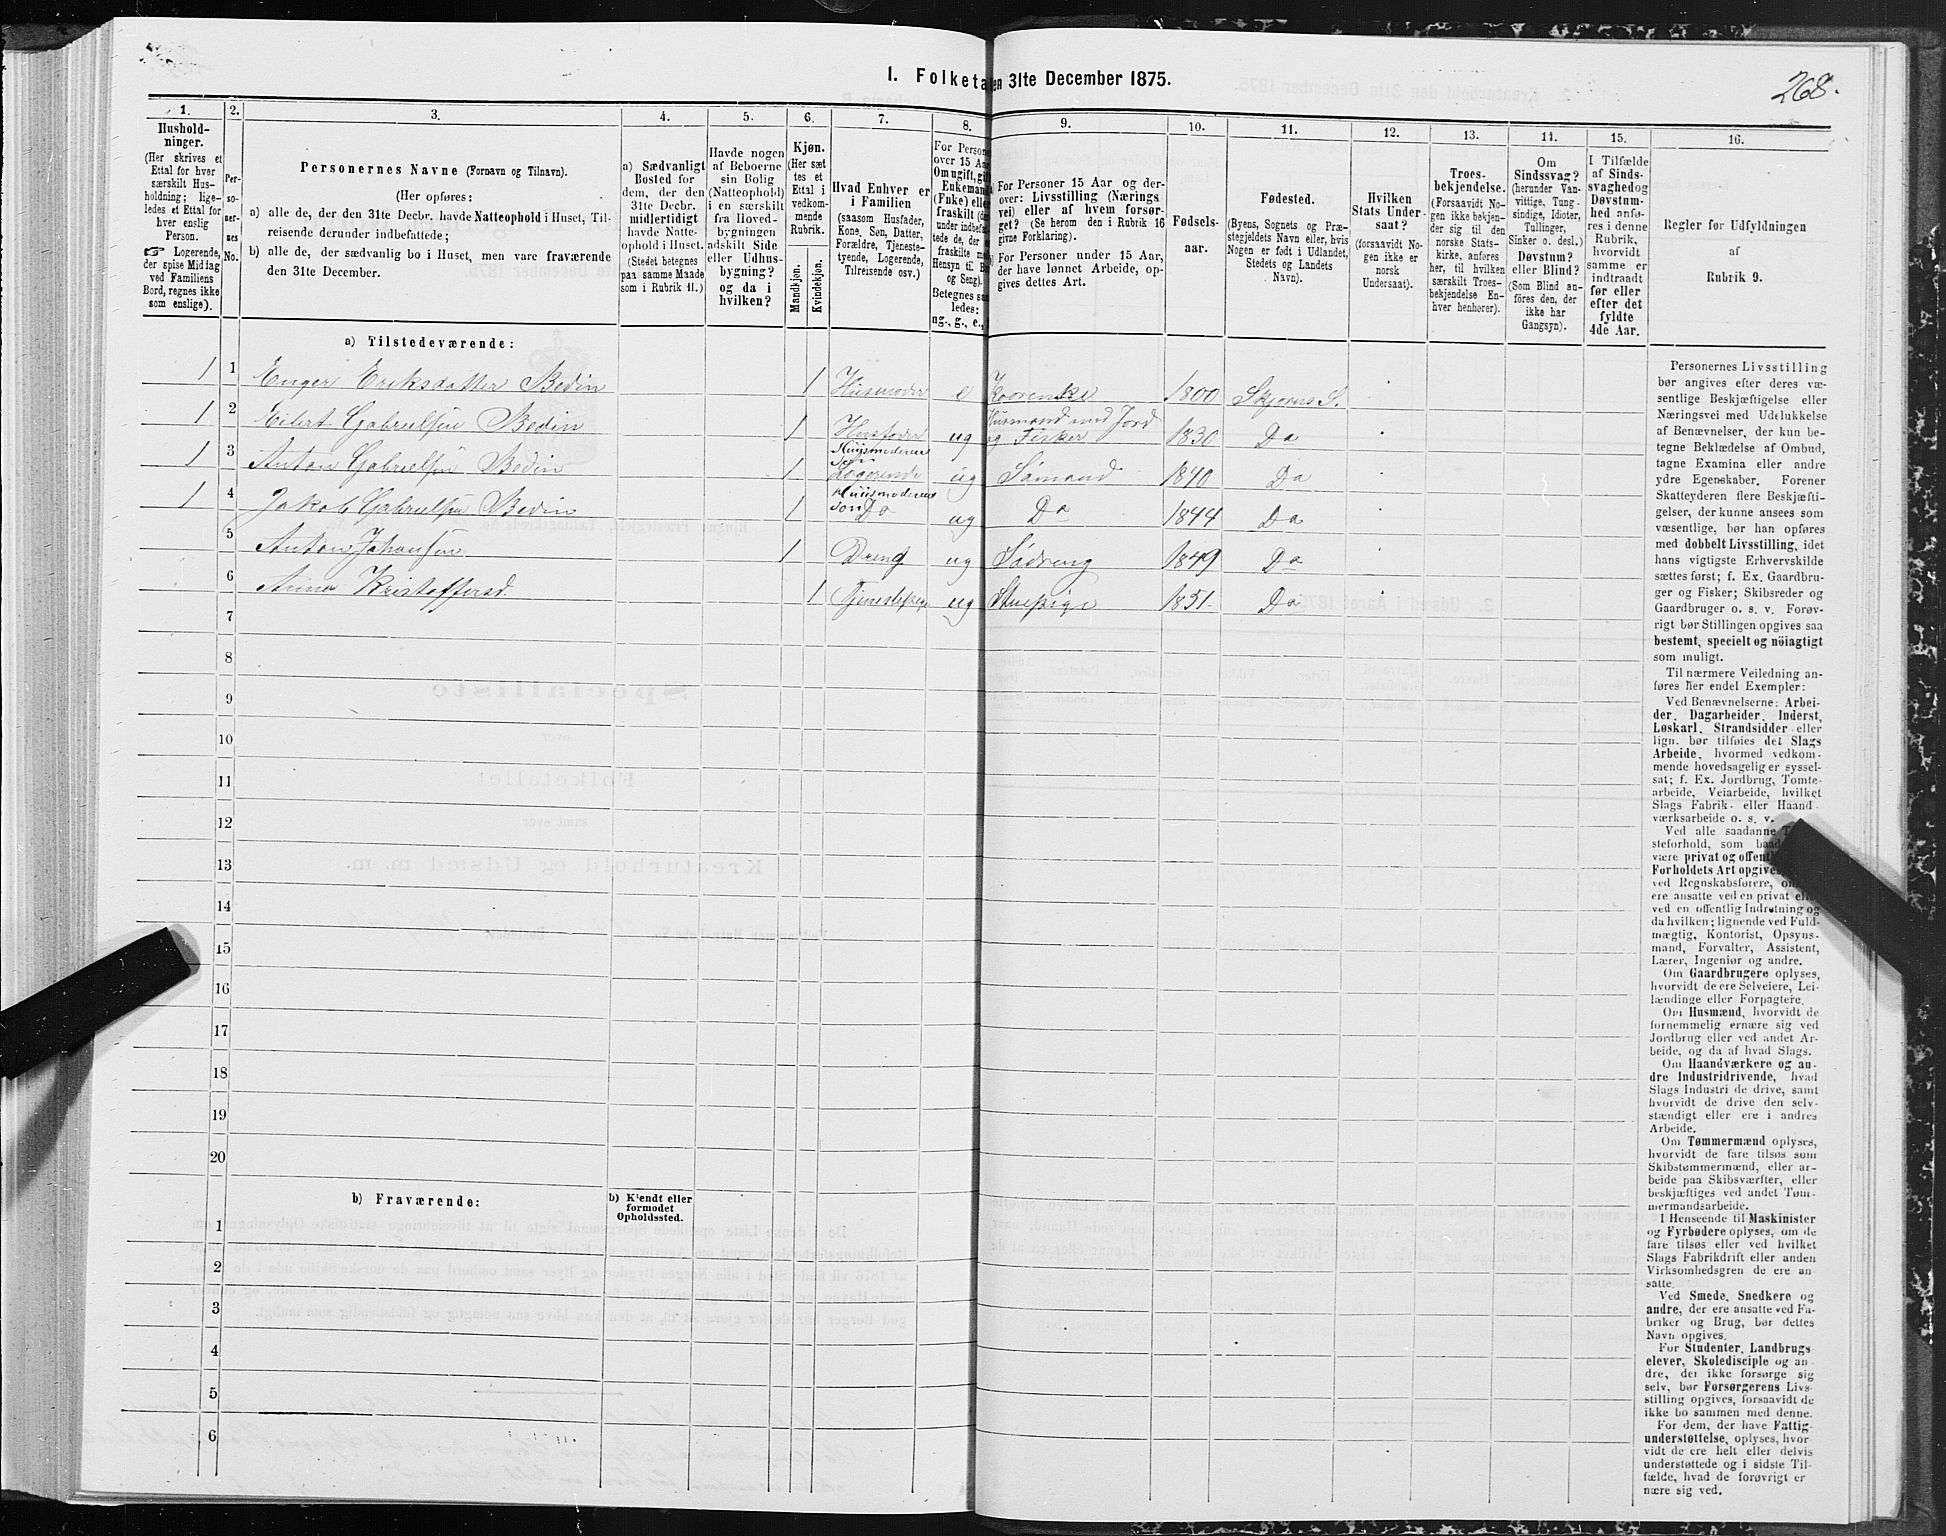 I. Folketa en 31te December 1875.
268.
1.
Hushold-
ninger.
(Her skrives et
Ettal for hver
særskilt Hus-
holdning; lige-
ledes et Ettal for
hver enslig
Person.
☞ Logerende,
der spise Middag
ved Familiens
Bord, regnes ikke
som enslige).
2.
Per-
so-
ner-
nes
No.
3.
Personernes Navne (Fornavn og Tilnavn).
(Her opføres:
a) alle de, der den 31te Decbr. havde Natteophold i Huset, Til-
reisende derunder indbefattede;
b) alle de, der sædvanlig bo i Huset, men vare fraværende
den 31te December.
4.
a) Sædvanligt
Bosted for
dem, der den
31te Decbr.
midlertidigt
havde Natte-
ophold i Huset.
(Stedet betegnes
paa samme Maade
som i Rubrik 11.)
5.
Havde nogen
af Beboerne
sin Bolig
(Natteophold)
i en særskilt
fra Hoved-
bygningen
adskilt Side
eller Udhus-
bygning?
og da i
hvilken?
6.
Kjøn.
(Her sæt
tes et
Ettal i
vedkom-
mende
Rubrik.
Mandkjøn.
Kvindekjøn.
7.
Hvad Enhver er
i Familien
(saasom Husfader,
Kone, Søn, Datter,
Forældre, Tjeneste-
tyende, Logerende,
Tilreisende osv.)
8.
For Person
over 15 Aa
Om ugift, gif
Enkemand
(Fnke) elle
fraskilt (de
under indbefat
tede de, der
fraskilte m
Hensyn til B
og Seng).
Betegnes sa
ledes:
ug., g., e.,
9.
For Personer 15 Aar og der-
over: Livsstilling (Nærings
vei) eller af hvem forsør-
get? (Se herom den i Rubrik 16
givne Forklaring).
For Personer under 15 Aar,
der have lønnet Arbeide, op-
gives dettes Art.
10.
Fødsels-
aar.
11.
Fødested.
(Byens, Sognets og Præ-
stegjeldets Navn eller, hvis
Nogen er født i Udlandet,
Stedets og Landets
Navn).
12.
Hvilken
Stats Under-
saat?
(forsaavidt No-
gen ikke er
norsk
Undersaat).
13.
Troes-
bekjendelse.
(Forsaavidt No-
gen ikke bekjen-
der sig til den
norske Stats-
kirke, anføres
her, til hvilken
særskilt Troes-
bekjendelse En-
hver henhører).
14.
Om
Sindssvag?
(herunder Van-
vittige, Tung-
sindige, Idioter,
Tullinger,
Sinker o. desl.)
Døvstum?
eller Blind?
(Som Blind an-
føres den, der
ikke har
Gangsyn).
15.
I Tilfælde
af Sinds-
svaghed og
Døvstum-
hed anfø-
res i denne
Rubrik,
hvorvidt
samme er
indtraadt
før eller
efter det
fyldte
4de Aar.
16.
Regler for Udfyldningen
af
Rubrik 9.
a) Tilstedeværende:
1 1 Enger Eriksdatter Bedin 1 Husmoder e 1800 Skjerns S.
1 2 Eilert Gabrielsen Bedin 1 Husfader ug Husmand med Jord og Fisker 1830 Do
1 3 Anton Gabrielsen Bedin 1 Huusmoderens Søn Logerende ug Sømand 1840 Do
1 4 Jakob Gabrielsen Bedin 1 Huusmoderens Søn Do ug Do 1844 Do
5 Anton Johansen 1 Dreng ug Sødreng 1849 Do
6 Anne Kristoffersd. 1 Tjenestepige ug Stuepige 1851. Do
7
8
9
10
11
12
13
14
15
16
17
18
19
20
b) Fraværende:
b) Kjendt eller
formodet
Opholdssted.
1
2
3
4
5
6
Personernes Livsstilling
bør angives efter deres væ-
sentlige Beskjæftigelse eller
Næringsvei med Udelukkelse
af Benævnelser, der kun be-
tegne Beklædelse af Ombud,
tagne Examina eller andre
ydre Egenskaber. Forener
Skatteyderen flere Beskjæfti-
gelser, der kunne ansees som
væsentlige, bør han opføres
med dobbelt Livsstilling, idet
hans vigtigste Erhvervskilde
sættes først; f. Ex. Gaardbru-
ger og Fisker; Skibsreder og
Gaardbruger o. s. v. Forøv-
rigt bør Stillingen opgives saa
bestemt, specielt og nöiagtigt
som muligt.
Til nærmere Veiledning an-
føres her endel Exempler:
Ved Benævnelserne: Arbei-
der, Dagarbeider, Inderst,
Løskarl, Strandsidder eller
lign. bør tilføies det Slags
Arbeide, hvormed vedkom-
mende hovedsagelig er syssel-
sat; f. Ex. Jordbrug, Tomte-
arbeide, Veiarbeide, hvilket
Slags Fabrik- eller Haand
værksarbeide o. s. v.
Ved alle saadanne
steforhold, som baa
være privat og offent
Forholdets Art opgives
ved Regnskabsførere, om
ere ansatte ved en privat elle
ved en offentlig Indretning og
da hvilken; lignende ved Fuld-
mægtig, Kontorist, Opsyns-
mand, Forvalter, Assistent,
Lærer, Ingeniør og andre.
Om Gaardbrugere oplyses,
hvorvidt de ere Selveiere, Lei-
lændinge eller Forpagtere.
Om Husmænd, hvorvidt de
fornemmelig ernære sig ved
Jordbrug eller ved andet Ar-
beide, og da af hvad Slags.
Om Haandværkere og an-
dre Industridrivende, hvad
Slags Industri de drive, samt
hvorvidt de drive den selv-
stændigt eller ere i andres
Arbeide.
Om Tømmermænd oplyses,
hvorvidt de fare tilsøs som
Skibstømmermænd, eller ar-
beide paa Skibsværfter, eller
beskjæftiges ved andet Tøm-
mermandsarbeide.
I Henseende til Maskinister
og Fyrbødere oplyses, om de
fare tilsøs eller ved hvilket
Slags Fabrikdrift eller anden
Virksomhedsgren de ere an-
satte.
Ved Smede, Snedkere og
andre, der ere ansatte ved Fa-
briker og Brug, bør dettes
Navn opgives.
For Studenter, Landbrugs-
elever, Skoledisciple og an-
dre, der ikke forsørge sig
selv, bør Forsørgerens Livs-
stilling opgives, forsaavidt de
ikke bo sammen med denne.
For dem, der have Fattig-
understøttelse, oplyses, hvor-
vidt de ere helt eller delvis
understøttede og i sidste Til-
fælde, hvad de forøvrigt er
nære sig ved.